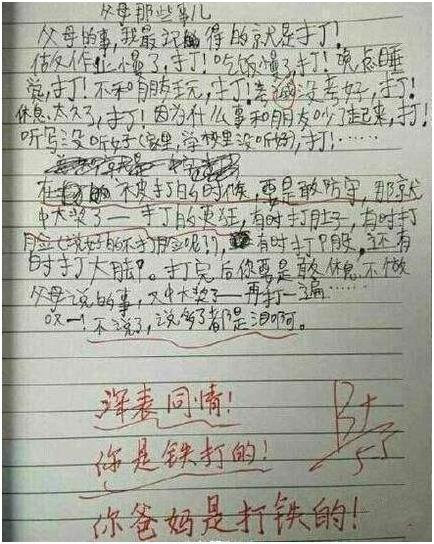 父母那些事儿
父母的事,我最记得的就是打!
做作业慢了,打!吃饭慢了,打!晚点睡
觉,打!不和朋友玩,打!考试没考好,打!
休息太久了,打!因为什么事和朋友吵了起来,打!
听写没听好(家里,学校里没听好),打!……
在 被打的时候,要是敢防守,那就
中大奖了——打的更狂,有时打肚子,有时打
脸(说好的不打脸呢),有时打PP股,还有
时打大腿。打完后你要是敢休息,不做
父母说的事,又中大奖了——再打一遍……
哎——!不说了,说多了都是泪啊。
深表同情!
B+
你是铁打的!
你爸妈是打铁的!